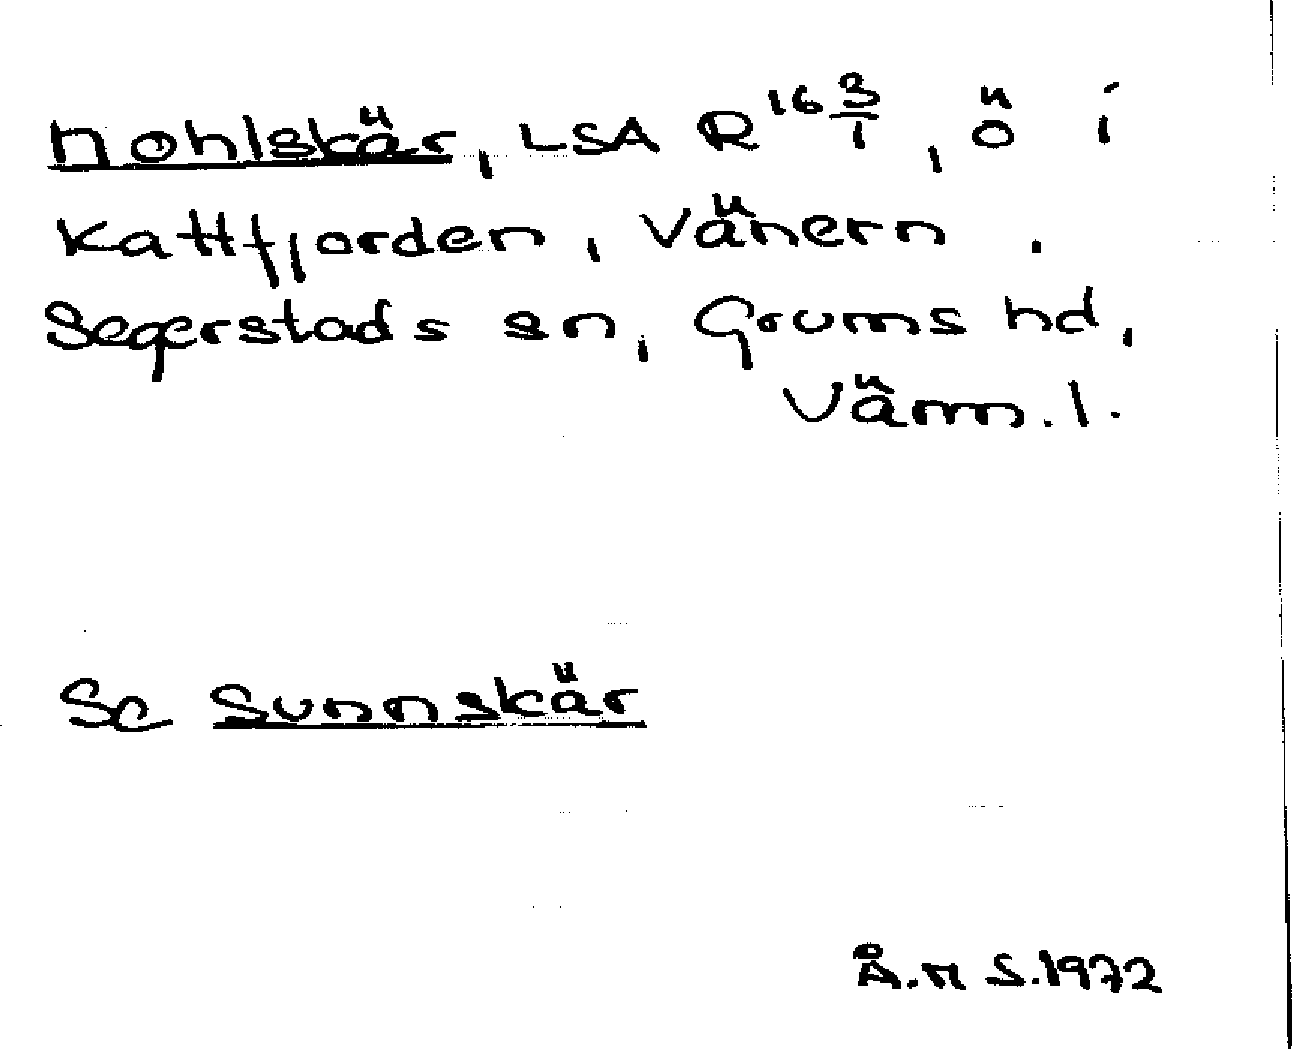 Nohlskär, LSA R16 3/1, ö i
Kattfjorden, Vänern.
Segerstads sn, Grums hd,
Värm.l.
Se Sunnskär
Å.H S.1972